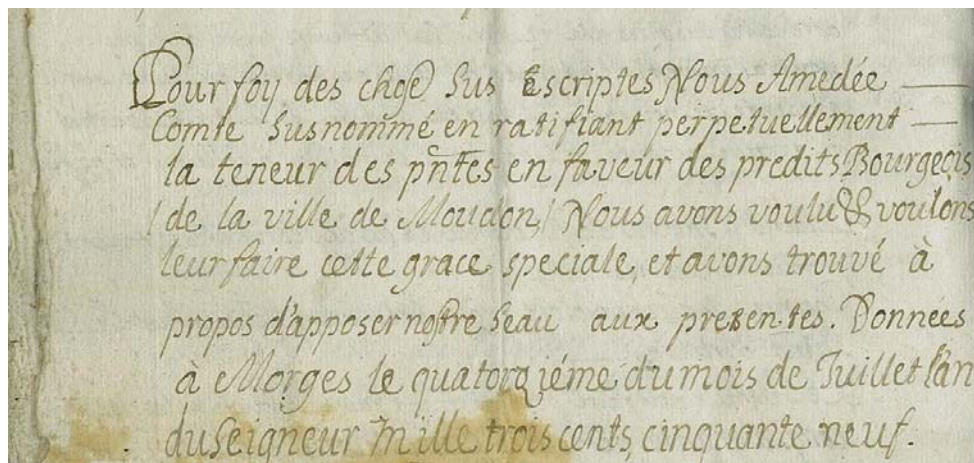 Pour foy des choẽ sus Escriptes Nous Amedée
Comte susnom̃é en ratifiant perpetuellement
la teneur des pñtes en faveur des predits Bourgeois
/de la ville de Moudon/ Nous avons voulu & voulons
leur faire cette grace speciale, et avons trouvé à
propos d'apposer nostre seau aux presentes. Données
à Morges le quatorziéme du mois de Juillet l'an
du Seigneur mille trois cents, cinquante neuf.